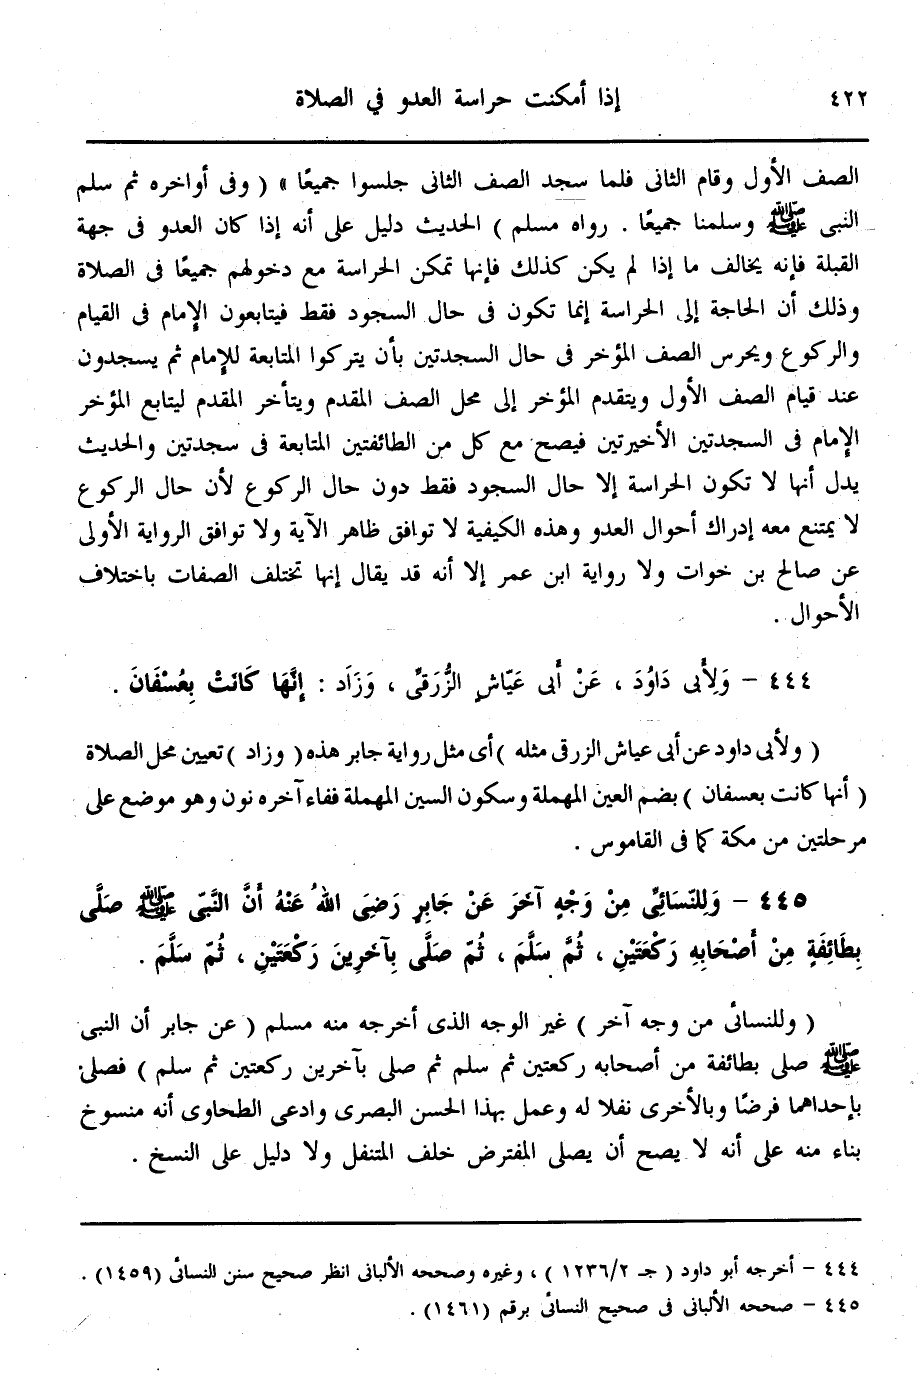 ٤٢٢ إذا أمكنت حراسة العدو في الصلاة
الصف الأول وقام الثانى فلما سجد الصف الثانى جلسوا جميعًا » ( وفى أواخره ثم سلم
النبى ﷺ وسلمنا جميعًا . رواه مسلم ) الحديث دليل على أنه إذا كان العدو فى جهة
القبلة فإنه يخالف ما إذا لم يكن كذلك فإنها تمكن الحراسة مع دخولهم جميعًا فى الصلاة
وذلك أن الحاجة إلى الحراسة إنما تكون فى حال السجود فقط فيتابعون الإمام فى القيام
والركوع ويحرس الصف المؤخر فى حال السجدتين بأن يتركوا المتابعة للإمام ثم يسجدون
عند قيام الصف الأول ويتقدم المؤخر إلى محل الصف المقدم ويتأخر المقدم ليتابع المؤخر
الإمام فى السجدتين الأخيرتين فيصح مع كل من الطائفتين المتابعة فى سجدتين والحديث
يدل أنها لا تكون الحراسة إلا حال السجود فقط دون حال الركوع لأن حال الركوع
لا يمتنع معه إدراك أحوال العدو وهذه الكيفية لا توافق ظاهر الآية ولا توافق الرواية الأولى
عن صالح بن خوات ولا رواية ابن عمر إلا أنه قد يقال إنها تختلف الصفات باختلاف
الأحوال .
٤٤٤ – وَلِأَبى دَاوُدَ ، عَنْ أَبى عَيّاشٍ الزُّرَقىِّ ، وَزَاد : إِنَّهَا كَانَتْ بِعُسْفَانَ .
( ولأبى داود عن أبى عياش الزرقى مثله ) أى مثل رواية جابر هذه ( وزاد ) تعيين محل الصلاة
( أنها كانت بعسفان ) بضم العين المهملة وسكون السين المهملة ففاء آخره نون وهو موضع على
مرحلتين من مكة كما فى القاموس .
٤٤٥ – وَلِلنّسَائىِّ مِنْ وَجْهٍ آخَرَ عَنْ جَابِرٍ رَضىَ اللهُ عَنْهُ أَنَّ النَّبىّ ﷺ صَلَّى
بِطَائفَةٍ مِنْ أَصْحَابِهِ رَكْعَتَيْنِ ، ثُمَّ سَلَّمَ ، ثُمّ صَلَّى بِآخَرِينَ رَكْعَتَيْنِ ، ثُمّ سَلَّمَ .
( وللنسائى من وجه آخر ) غير الوجه الذى أخرجه منه مسلم ( عن جابر أن النبى
ﷺ صلى بطائفة من أصحابه ركعتين ثم سلم ثم صلى بآخرين ركعتين ثم سلم ) فصلى
بإحداهما فرضًا وبالأخرى نفلا له وعمل بهذا الحسن البصرى وادعى الطحاوى أنه منسوخ
بناء منه على أنه لا يصح أن يصلى المفترض خلف المتنفل ولا دليل على النسخ .
٤٤٤ – أخرجه أبو داود ( جـ ١٢٣٦/٢ ) ، وغيره وصححه الألبانى انظر صحيح سنن النسائى (١٤٥٩) .
٤٤٥ – صححه الألبانى فى صحيح النسائى برقم (١٤٦١) .